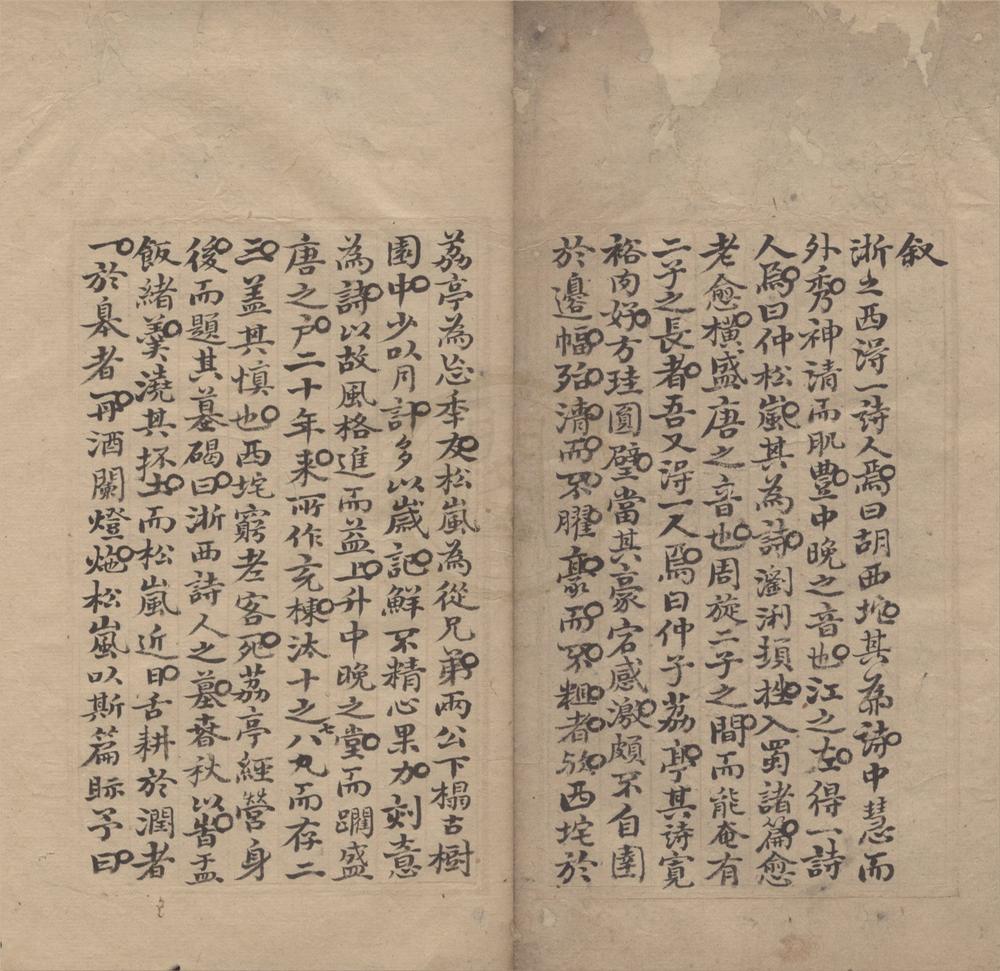 叙
浙之西得一詩人焉曰胡西垞其為詩中慧而
外秀神清而肌豐中晚之音也江之左得一詩
人焉曰仲松嵐其為詩瀏淵損挫入蜀諸篇愈
老愈橫盛唐之音也周旋二子之間而能奄有
二子之長者吾又得一人焉曰仲子荔亭其詩寬
裕肉好方珪圓璧當其豪宕感激頗不自圉
於邊幅殆清而不臞豪而不粗者歟西垞於
荔亭為忘季友松嵐為從兄弟兩公下榻古樹
園中少以月計多以歲記鮮不精心果力刻意
為詩以故風格進而益上升中晚之堂而躙盛
唐之户二十年来所作充棟汰十之七八九而存二
三蓋其慎也西垞窮老客死荔亭經營身
後而題其墓碣曰浙西詩人之墓春秋以眢盂
飯緒羹澆其抔土而松嵐近日舌耕於潤者
一於皋者再酒闌燈灺松嵐以斯篇眎予曰